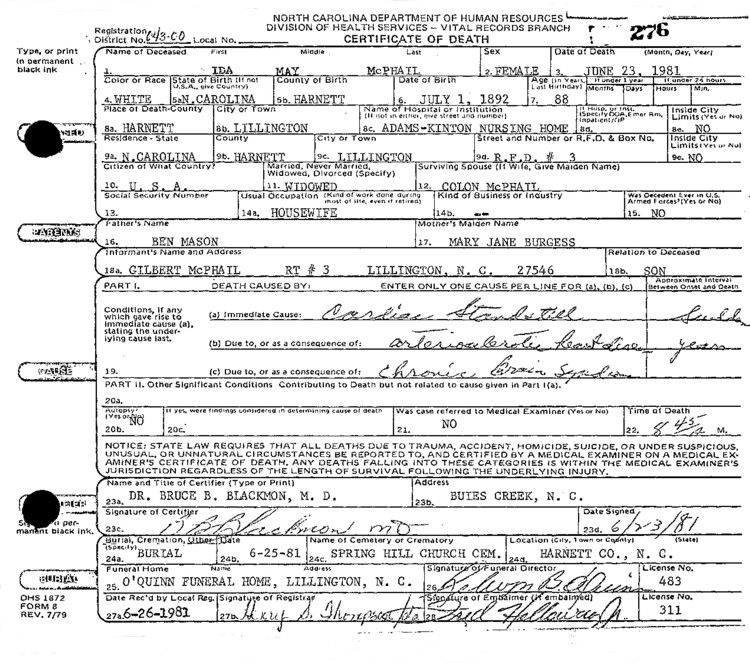 NORTH CAROLINA DEPARTMENT OF HUMAN RESOURCES
DIVISION OF HEALTH SERVICES – VITAL RECORDS BRANCH
CERTIFICATE OF DEATH
276
Registration District No. 643-CO Local No.
Type, or print in permanent black ink
Name of Deceased First Middle Last Sex Date of Death (Month, Day, Year)
1. IDA MAY McPHAIL 2. FEMALE 3. JUNE 23, 1981
Color or Race State of Birth (If not U.S.A., give Country) County of Birth Date of Birth Age (in Years, Last Birthday) If under 1 year Months Days If under 24 hours Hours Min.
4. WHITE 5a N.CAROLINA 5b. HARNETT 6. JULY 1, 1892 7. 88
Place of Death-County City or Town Name of Hospital or Institution (If not in either, give street and number) If Hosp. or Inst. (Specify DOA, Emer Rm, Inpatient/OP Inside City Limits (Yes or No)
8a. HARNETT 8b. LILLINGTON 8c. ADAMS-KINTON NURSING HOME 8d. 8e. NO
Residence - State County City or Town Street and Number or R.F.D. & Box No. Inside City Limits (Yes or No)
9a. N.CAROLINA 9b. HARNETT 9c. LILLINGTON 9d. R.F.D. # 3 9e. NO
Citizen of What Country? Married, Never Married, Widowed, Divorced (Specify) Surviving Spouse (If Wife, Give Maiden Name)
10. U. S. A. 11. WIDOWED 12. COLON McPHAIL
Social Security Number Usual Occupation (Kind of work done during most of life, even if retired) Kind of Business or Industry Was Decedent Ever in U.S. Armed Forces? (Yes or No)
13. 14a. HOUSEWIFE 14b. -- 15. NO
PARENTS
Father's Name Mother's Maiden Name
16. BEN MASON 17. MARY JANE BURGESS
Informant's Name and Address Relation to Deceased
18a. GILBERT McPHAIL RT # 3 LILLINGTON, N. C. 27546 18b. SON
PART I. DEATH CAUSED BY: ENTER ONLY ONE CAUSE PER LINE FOR (a), (b), (c) Approximate Interval Between Onset and Death
Conditions, if any which gave rise to immediate cause (a), stating the underlying cause last.
(a) Immediate Cause: Cardiac Standstill
(b) Due to, or as a consequence of: arteriosclerotic heart dise years
CAUSE
19. (c) Due to, or as a consequence of: Chronic Brain
PART II. Other Significant Conditions Contributing to Death but not related to cause given in Part I(a).
20a.
Autopsy? (Yes or No) If yes, were findings considered in determining cause of death Was case referred to Medical Examiner (Yes or No) Time of Death
20b. NO 20c. 21. NO 22. 8 45 a M.
NOTICE: STATE LAW REQUIRES THAT ALL DEATHS DUE TO TRAUMA, ACCIDENT, HOMICIDE, SUICIDE, OR UNDER SUSPICIOUS,
UNUSUAL, OR UNNATURAL CIRCUMSTANCES BE REPORTED TO, AND CERTIFIED BY A MEDICAL EXAMINER ON A MEDICAL EX-
AMINER'S CERTIFICATE OF DEATH. ANY DEATHS FALLING INTO THESE CATEGORIES IS WITHIN THE MEDICAL EXAMINER'S
JURISDICTION REGARDLESS OF THE LENGTH OF SURVIVAL FOLLOWING THE UNDERLYING INJURY.
Name and Title of Certifier (Type or Print) Address
23a. DR. BRUCE B. BLACKMON, M. D. 23b. BUIES CREEK, N. C.
Signature of Certifier Date Signed
23c. B B Blackmon MD 23d. 6/23/81
black ink.
Burial, Cremation, Other (Specify) Date Name of Cemetery or Crematory Location (City, Town or County) (State)
24a. BURIAL 24b. 6-25-81 24c. SPRING HILL CHURCH CEM. 24d. HARNETT CO., N. C.
BURIAL
Funeral Home Name Address Signature of Funeral Director License No.
25. O'QUINN FUNERAL HOME, LILLINGTON, N. C. 26. B. O'Quinn 483
DHS 1872
FORM 8
REV. 7/79
Date Rec'd by Local Reg. Signature of Registrar Signature of Embalmer (If embalmed) License No.
27a. 6-26-1981 27b. S. Thompson 28. Fred Holloway Jr. 311